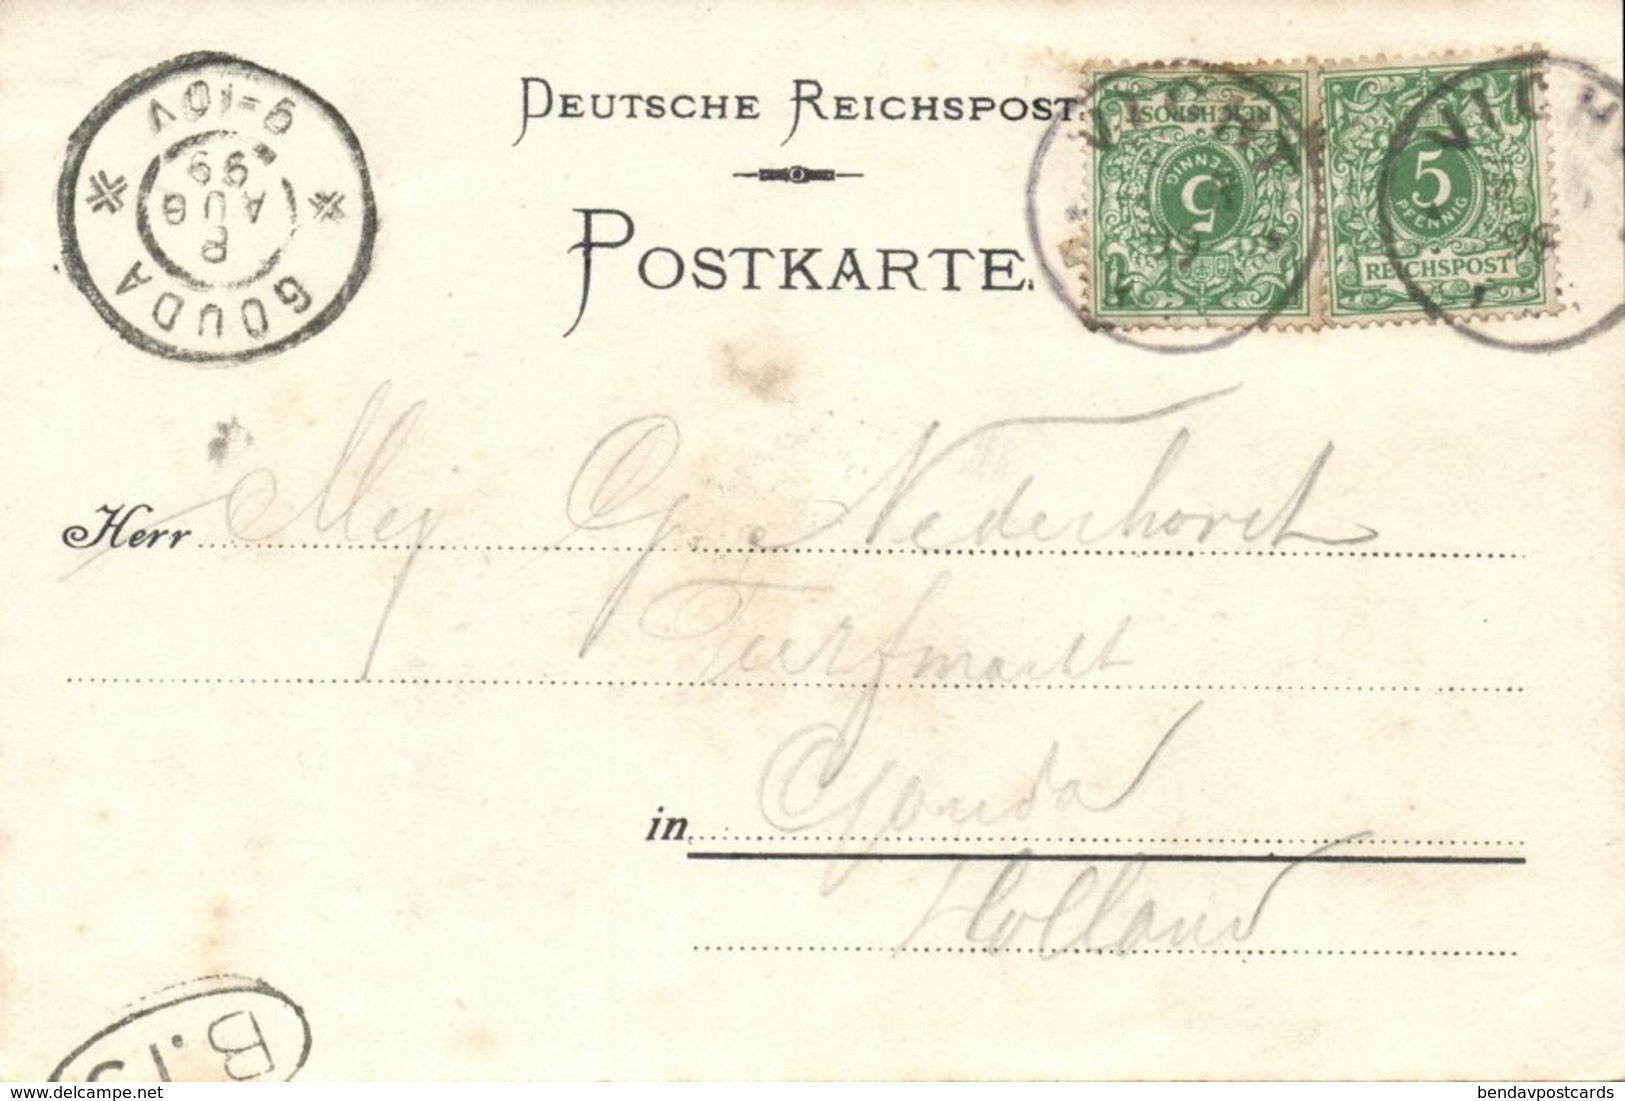 DEUTSCHE REICHSPOST.
POSTKARTE.
GOUDA
8
AUG
99
9-10V
VICHT
99
REICHSPOST
PFENNIG
5
VICH
5
PFENNIG
REICHSPOST
Herr Mej G. Nederhorst
Turfmarkt
in Gouda
Holland
bendavpostcards